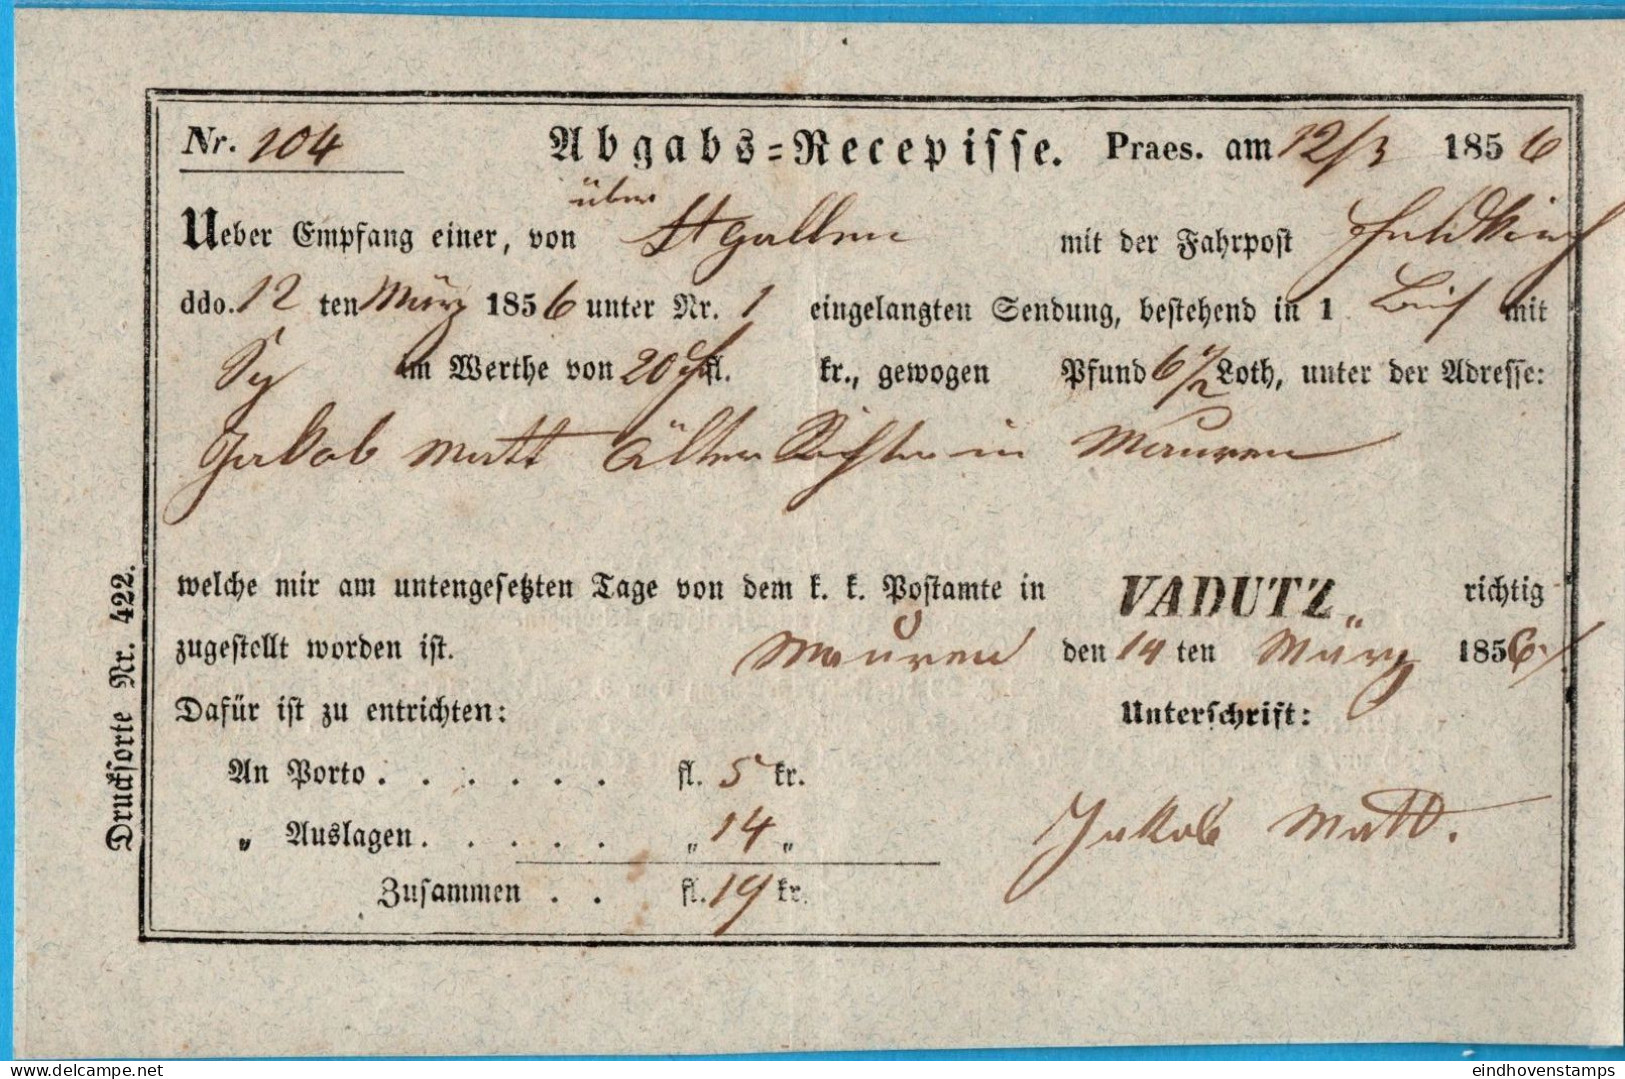 Nr. 104 Abgabs=Recepisse. Praes. am 12/3 1856
über
Ueber Empfang einer, von St gallen mit der Fahrpost Feldkirch
ddo. 12 ten März 1856 unter Nr. 1 eingelangten Sendung, bestehend in 1 Brief mit
im Werthe von 20 fl. kr., gewogen Pfund 6 1/2 Loth, unter der Adresse:
Jakob Matt Älter Richter in Mauren
welche mir am untengesetzten Tage von dem k. k. Postamte in VADUTZ„ richtig
zugestellt worden ist. Mauren den 14 ten März 1856
Dafür ist zu entrichten: Unterschrift:
An Porto . . . . . . fl. 5 kr.
„ Auslagen. . . . . „ 14 „ Jakob Matt.
Zusammen . . fl. 19 kr.
Drucksorte Nr. 422.
delcampe.net
eindhovenstamps